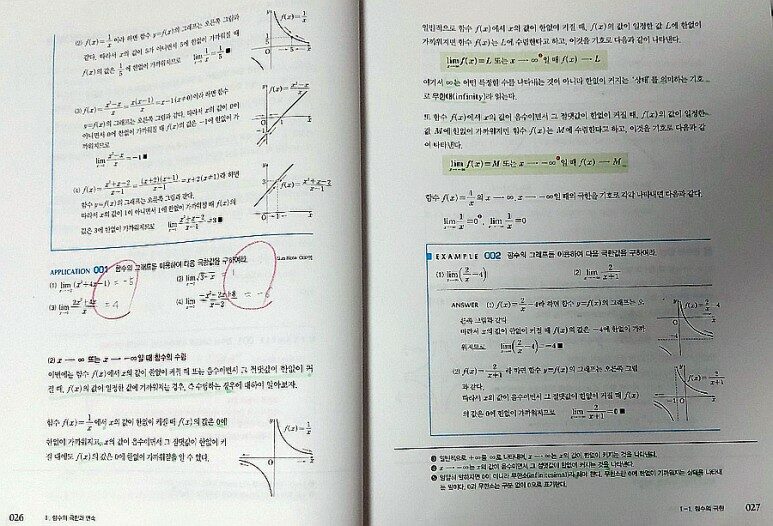 (2) f(x)=1/x 이라 하면 함수 y=f(x)의 그래프는 오른쪽 그림과
같다. 따라서 x의 값이 5가 아니면서 5에 한없이 가까워질 때
f(x)의 값은 1/5에 한없이 가까워지므로 lim 1/x = 1/5 ■
(3) f(x)=(x²-x)/x=x(x-1)/x=x-1(x≠0)이라 하면 함수
y=f(x)의 그래프는 오른쪽 그림과 같다. 따라서 x의 값이 0이
아니면서 0에 한없이 가까워질 때 f(x)의 값은 -1에 한없이 가
까워지므로
lim (x²-x)/x=-1 ■
(4) f(x)=(x²+x-2)/(x-1)=(x+2)(x-1)/(x-1)=x+2(x≠1)라 하면
함수 y=f(x)의 그래프는 오른쪽 그림과 같다.
따라서 x의 값이 1이 아니면서 1에 한없이 가까워질 때 f(x)의
값은 3에 한없이 가까워지므로 lim (x²+x-2)/(x-1)=3 ■
APPLICATION 001 함수의 그래프를 이용하여 다음 극한값을 구하여라.
(1) lim(x²+4x-1) = -5
(2) lim √(3-x) = 1
(3) lim (2x²+4x)/x = 4
(4) lim (-x²-2x+8)/(x-2) = -6
(2) x → ∞ 또는 x → -∞일 때 함수의 수렴
이번에는 함수 f(x)에서 x의 값이 한없이 커질 때 또는 음수이면서 그 절댓값이 한없이 커
질 때, f(x)의 값이 일정한 값에 가까워지는 경우, 즉 수렴하는 경우에 대하여 알아보자.
함수 f(x)=1/x에서 x의 값이 한없이 커질 때 f(x)의 값은 0에
한없이 가까워지고, x의 값이 음수이면서 그 절댓값이 한없이 커
질 때에도 f(x)의 값은 0에 한없이 가까워짐을 알 수 있다.
026 I. 함수의 극한과 연속
일반적으로 함수 f(x)에서 x의 값이 한없이 커질 때, f(x)의 값이 일정한 값 L에 한없이
가까워지면 함수 f(x)는 L에 수렴한다고 하고, 이것을 기호로 다음과 같이 나타낸다.
lim f(x)=L 또는 x → ∞일 때 f(x) → L
여기서 ∞는 어떤 특정한 수를 나타내는 것이 아니라 한없이 커지는 '상태'를 의미하는 기호
로 무한대(infinity)라 읽는다.
또 함수 f(x)에서 x의 값이 음수이면서 그 절댓값이 한없이 커질 때, f(x)의 값이 일정한
값 M에 한없이 가까워지면 함수 f(x)는 M에 수렴한다고 하고, 이것을 기호로 다음과 같
이 나타낸다.
lim f(x)=M 또는 x → -∞일 때 f(x) → M
함수 f(x)=1/x의 x → ∞, x → -∞일 때의 극한을 기호로 각각 나타내면 다음과 같다.
lim 1/x=0, lim 1/x=0
EXAMPLE 002 함수의 그래프를 이용하여 다음 극한값을 구하여라.
(1) lim(2/x-4)
(2) lim 2/(x+1)
ANSWER (1) f(x)=2/x-4라 하면 함수 y=f(x)의 그래프는 오
른쪽 그림과 같다.
따라서 x의 값이 한없이 커질 때 f(x)의 값은 -4에 한없이 가까
워지므로 lim(2/x-4)=-4 ■
(2) f(x)=2/(x+1)라 하면 함수 y=f(x)의 그래프는 오른쪽 그림
과 같다.
따라서 x의 값이 음수이면서 그 절댓값이 한없이 커질 때 f(x)
의 값은 0에 한없이 가까워지므로 lim 2/(x+1)=0 ■
일반적으로 +∞를 ∞로 나타내며, x → ∞는 x의 값이 한없이 커지는 것을 나타낸다.
x → -∞는 x의 값이 음수이면서 그 절댓값이 한없이 커지는 것을 나타낸다.
I-1 함수의 극한 027